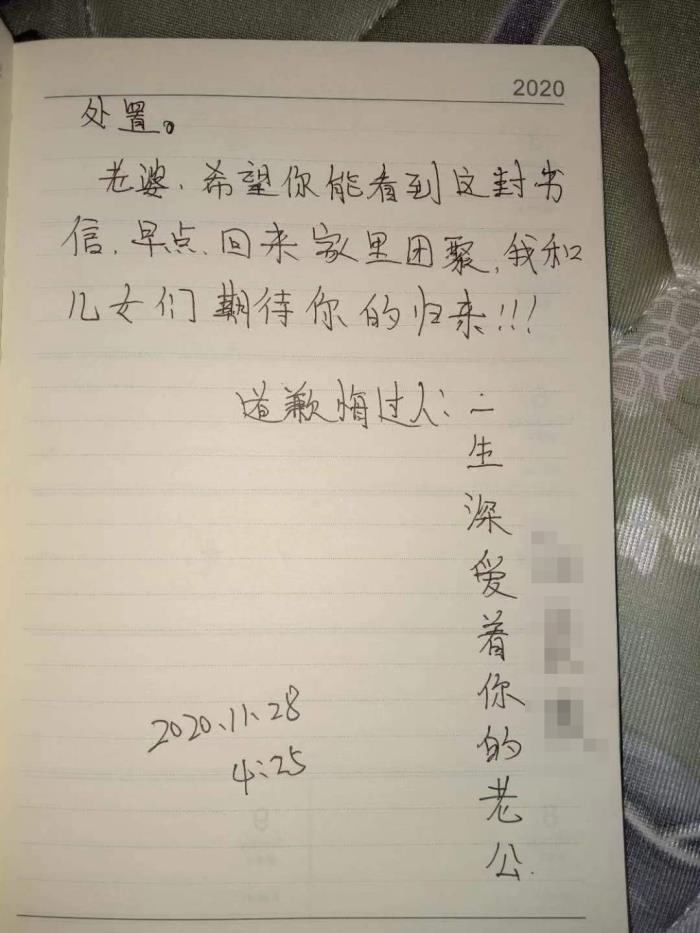 2020
处置。
老婆、希望你能看到这封书
信、早点、回来家里团聚,我和
儿女们期待你的归来!!!
道歉悔过人:一
生
深
爱
着
你
的
老
公.
2020.11.28
4:25